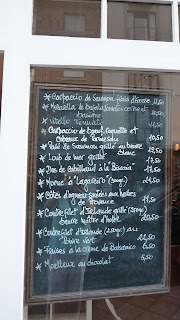 * Carpaccio de Saumon frais d'Ecosse 11,50
* Mozzarella de Bufala
basilic
* Vitello Tonnato
* Carpaccio de Boeuf, roquette et
Copeaux de Parmesan 10,50
* Pavé de Saumon grillé au beurre
blanc
* Loup de mer grillé
* Dos de Cabillaud à la
* Morue à Lagareiro (300gr)
* Côtes d'agneau grillées aux herbes
de Provence
* Contre filet d'Irlande grillé (300gr)
beurre maître d'hôtel
* Contre filet d'Irlande (300gr) au
Poivre vert
* Fraises à la crème de Balsamico 6,50
* Moelleux au chocolat 6,50